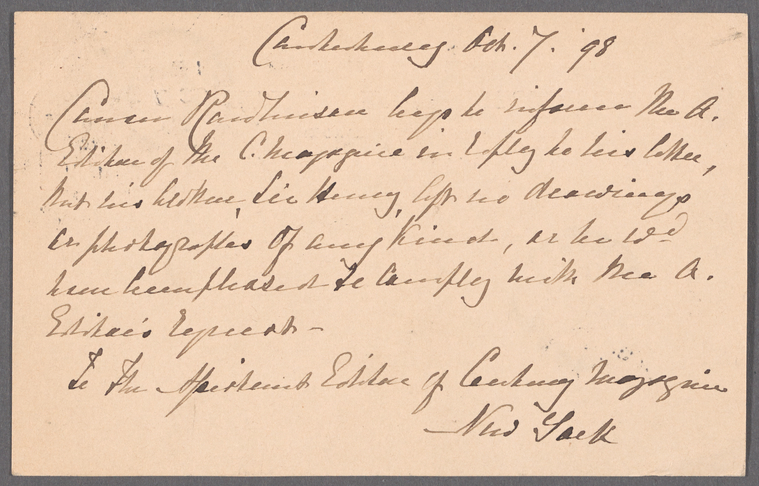 Canterbury. Oct. 7. '98
Canon Rawlinson begs to inform the A.
Editor of the C. Magazine in reply to his letter,
that his brother, Sir Henry, left no drawings
or photographs of any kind, or he wd
have been pleased to comply with the A.
Editor's request –
To the Assistant Editor of Century Magazine
New York